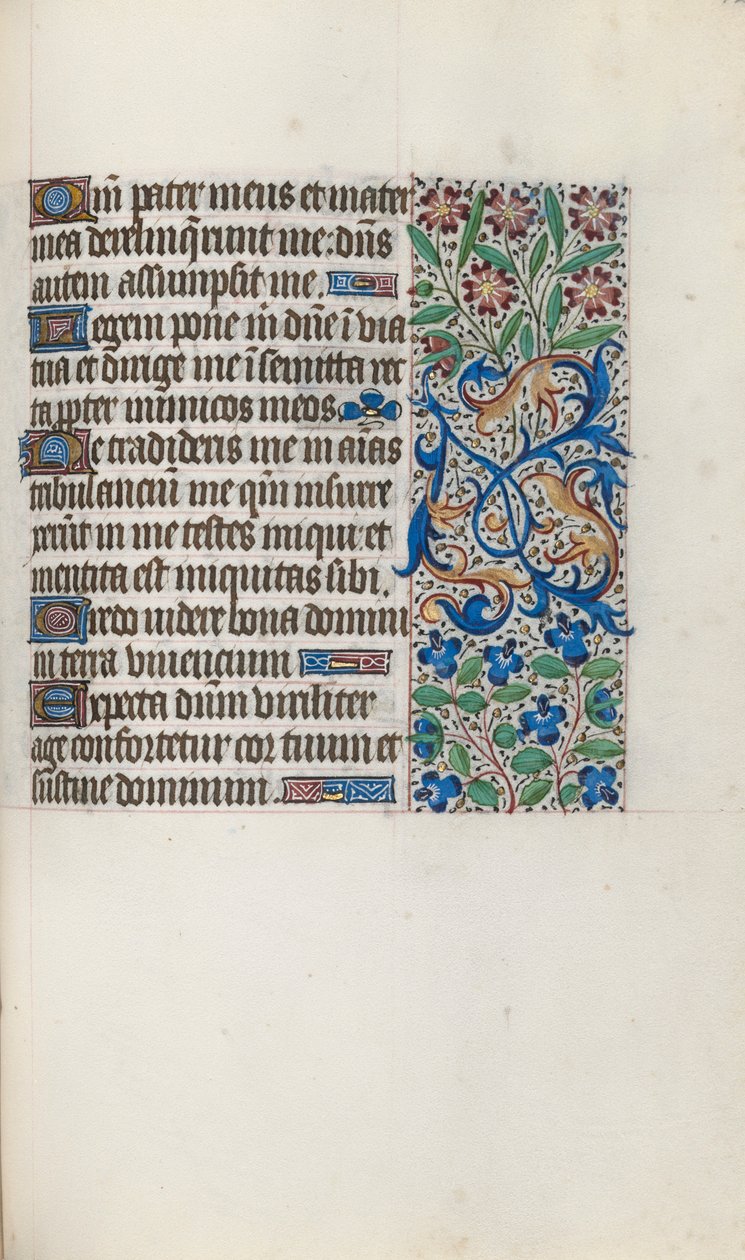 Qm̄ pater meus et mater
mea derelinq̄runt me: dn̄s
autem assumpsit me.
Legem pone m̄ dn̄e ī via
tua et dirige me ī semitta rec
ta ꝓpter inimicos meos.
Ne tradideris me in aīas
tribulanciū me qm̄ insurre
xerūt in me testes iniqui: et
mentita est iniquitas sibi.
Credo videre bona domini
in terra vivencium
Expecta dūm viriliter
age confortetur cor tuum et
sustine dominum.